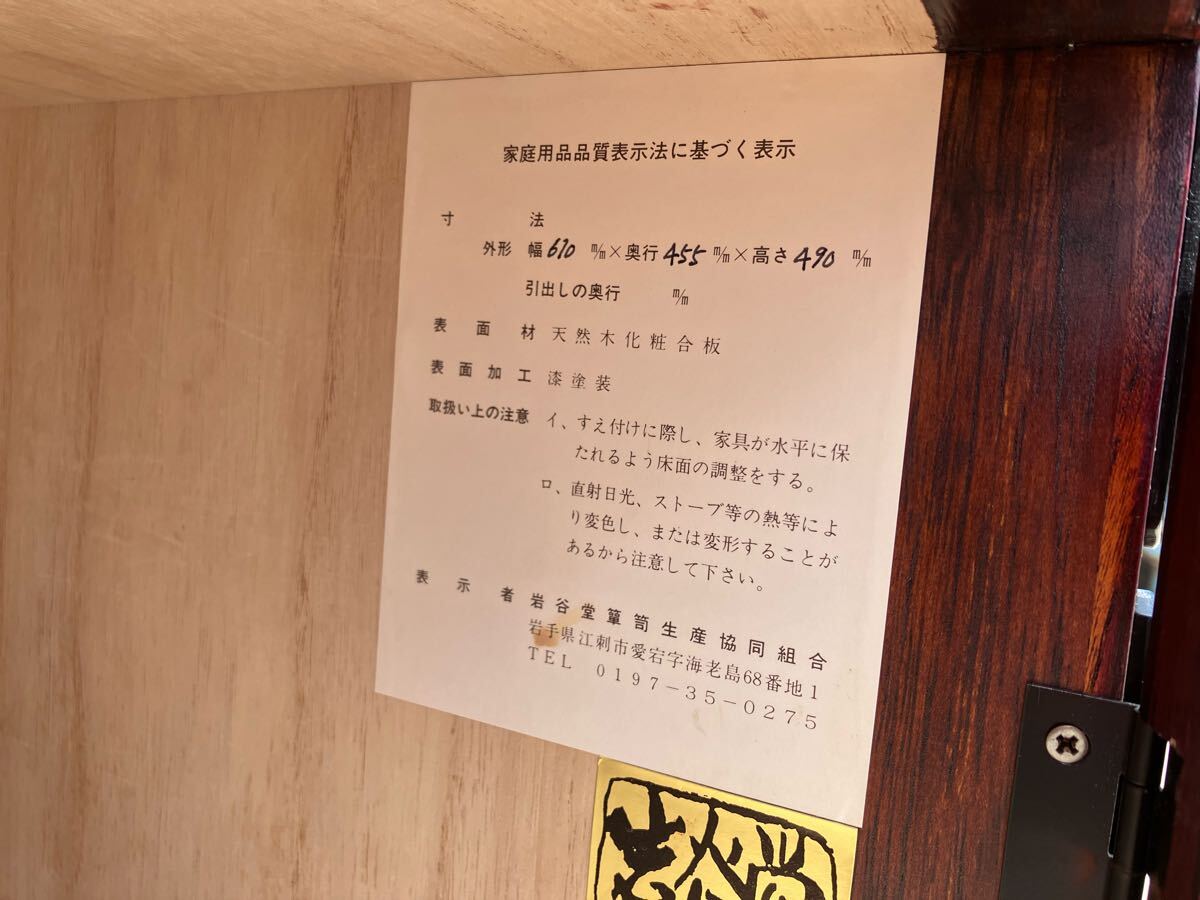 家庭用品品質表示法に基づく表示
寸法
外形 幅610m/m×奥行455m/m×高さ490m/m
引出しの奥行 m/m
表面材 天然木化粧合板
表面加工 漆塗装
取扱い上の注意 イ、すえ付けに際し、家具が水平に保
たれるよう床面の調整をする。
ロ、直射日光、ストーブ等の熱等によ
り変色し、または変形することが
あるから注意して下さい。
表示者 岩谷堂簞笥生産協同組合
岩手県江刺市愛宕字海老島68番地1
TEL 0197-35-0275